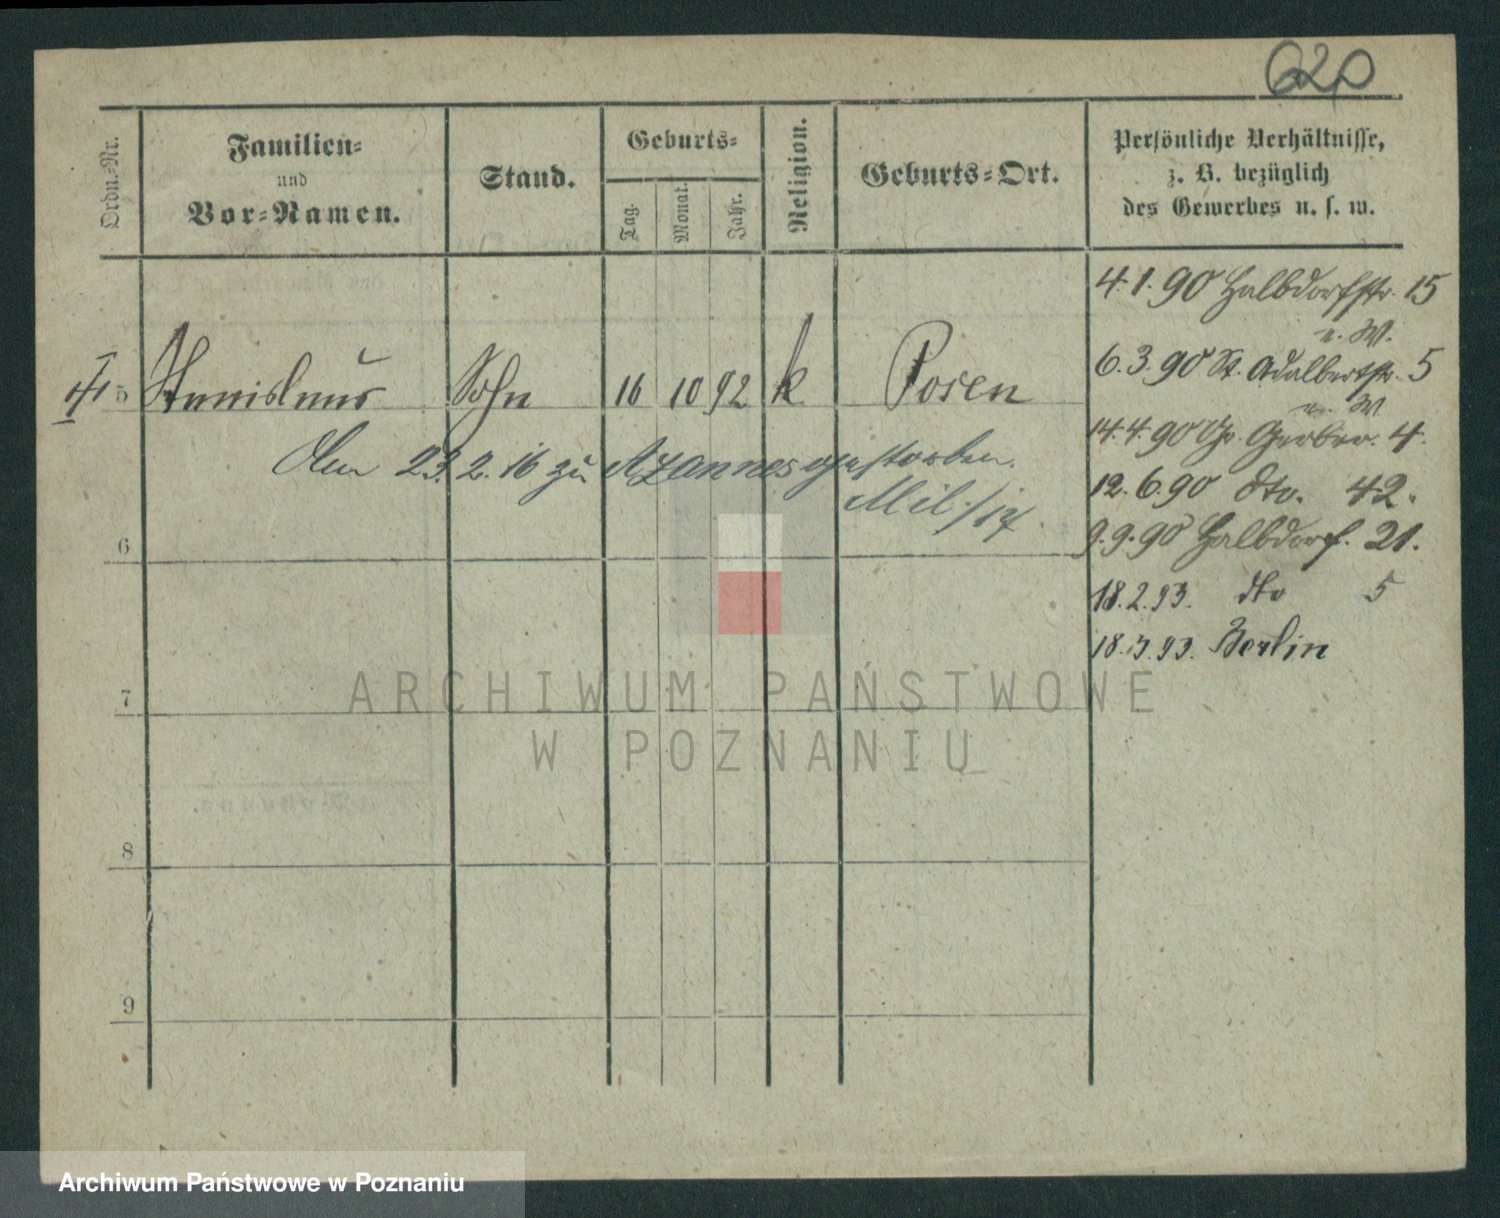 620
Ordn.-Nr.
Familien-
und
Vor-Namen.
Stand.
Geburts-
Tag.
Monat.
Jahr.
Religion.
Geburts-Ort.
Persönliche Verhältnisse,
z. B. bezüglich
des Gewerbes u. s. w.
4.1.90 Halbdorfstr. 15
u. W.
6.3.90 St. Adalbertstr. 5
u. W
14.4.90 Gr. Gerber. 4.
12.6.90 dto. 42.
9.9.90 Halbdorf. 21.
18.2.93. dto 5
18.3.93. Berlin
5 Stanislaus Sohn 16 10 92 k Posen
Am 23.2.16 zu Azannes gestorben.
Mil./17.
6
7
8
9
ARCHIWUM PAŃSTWOWE
W POZNANIU
Archiwum Państwowe w Poznaniu